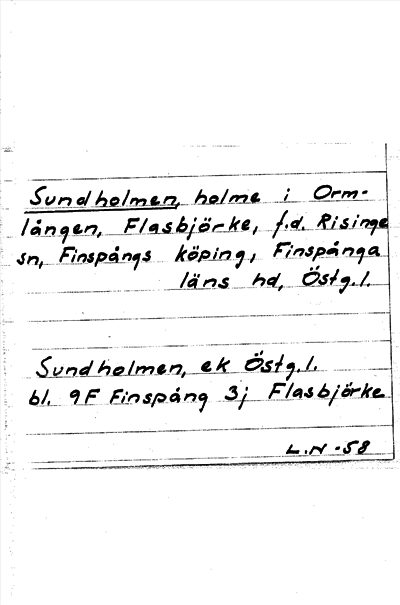 Sundholmen, holme i Orm-
lången, Flasbjörke, f.d. Risinge
sn, Finspångs köping, Finspånga
läns hd, Östg.l.
Sundholmen, ek Östg.l.
bl. 9F Finspång 3j Flasbjörke
L.N -58